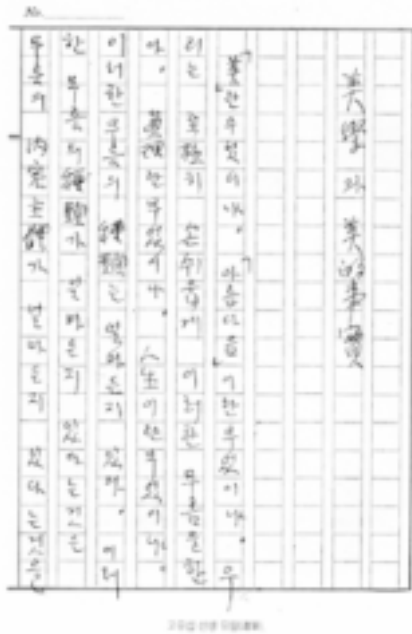 No.
美學과 美的事實
「美」란 무엇이냐. 「아름다움」이란 무엇이냐. 우
리는 至極히 손쉽게 이러한 무름을 한
다. 란 무엇이냐. 人生이란 무엇이냐.
이러한 무름의 種類는 얼마든지 있다. 이러
한 무름의 種類가 얼마든지 있다는 것은
무름의 內容主體가 얼마든지 있다는 것을
고유섭 선생